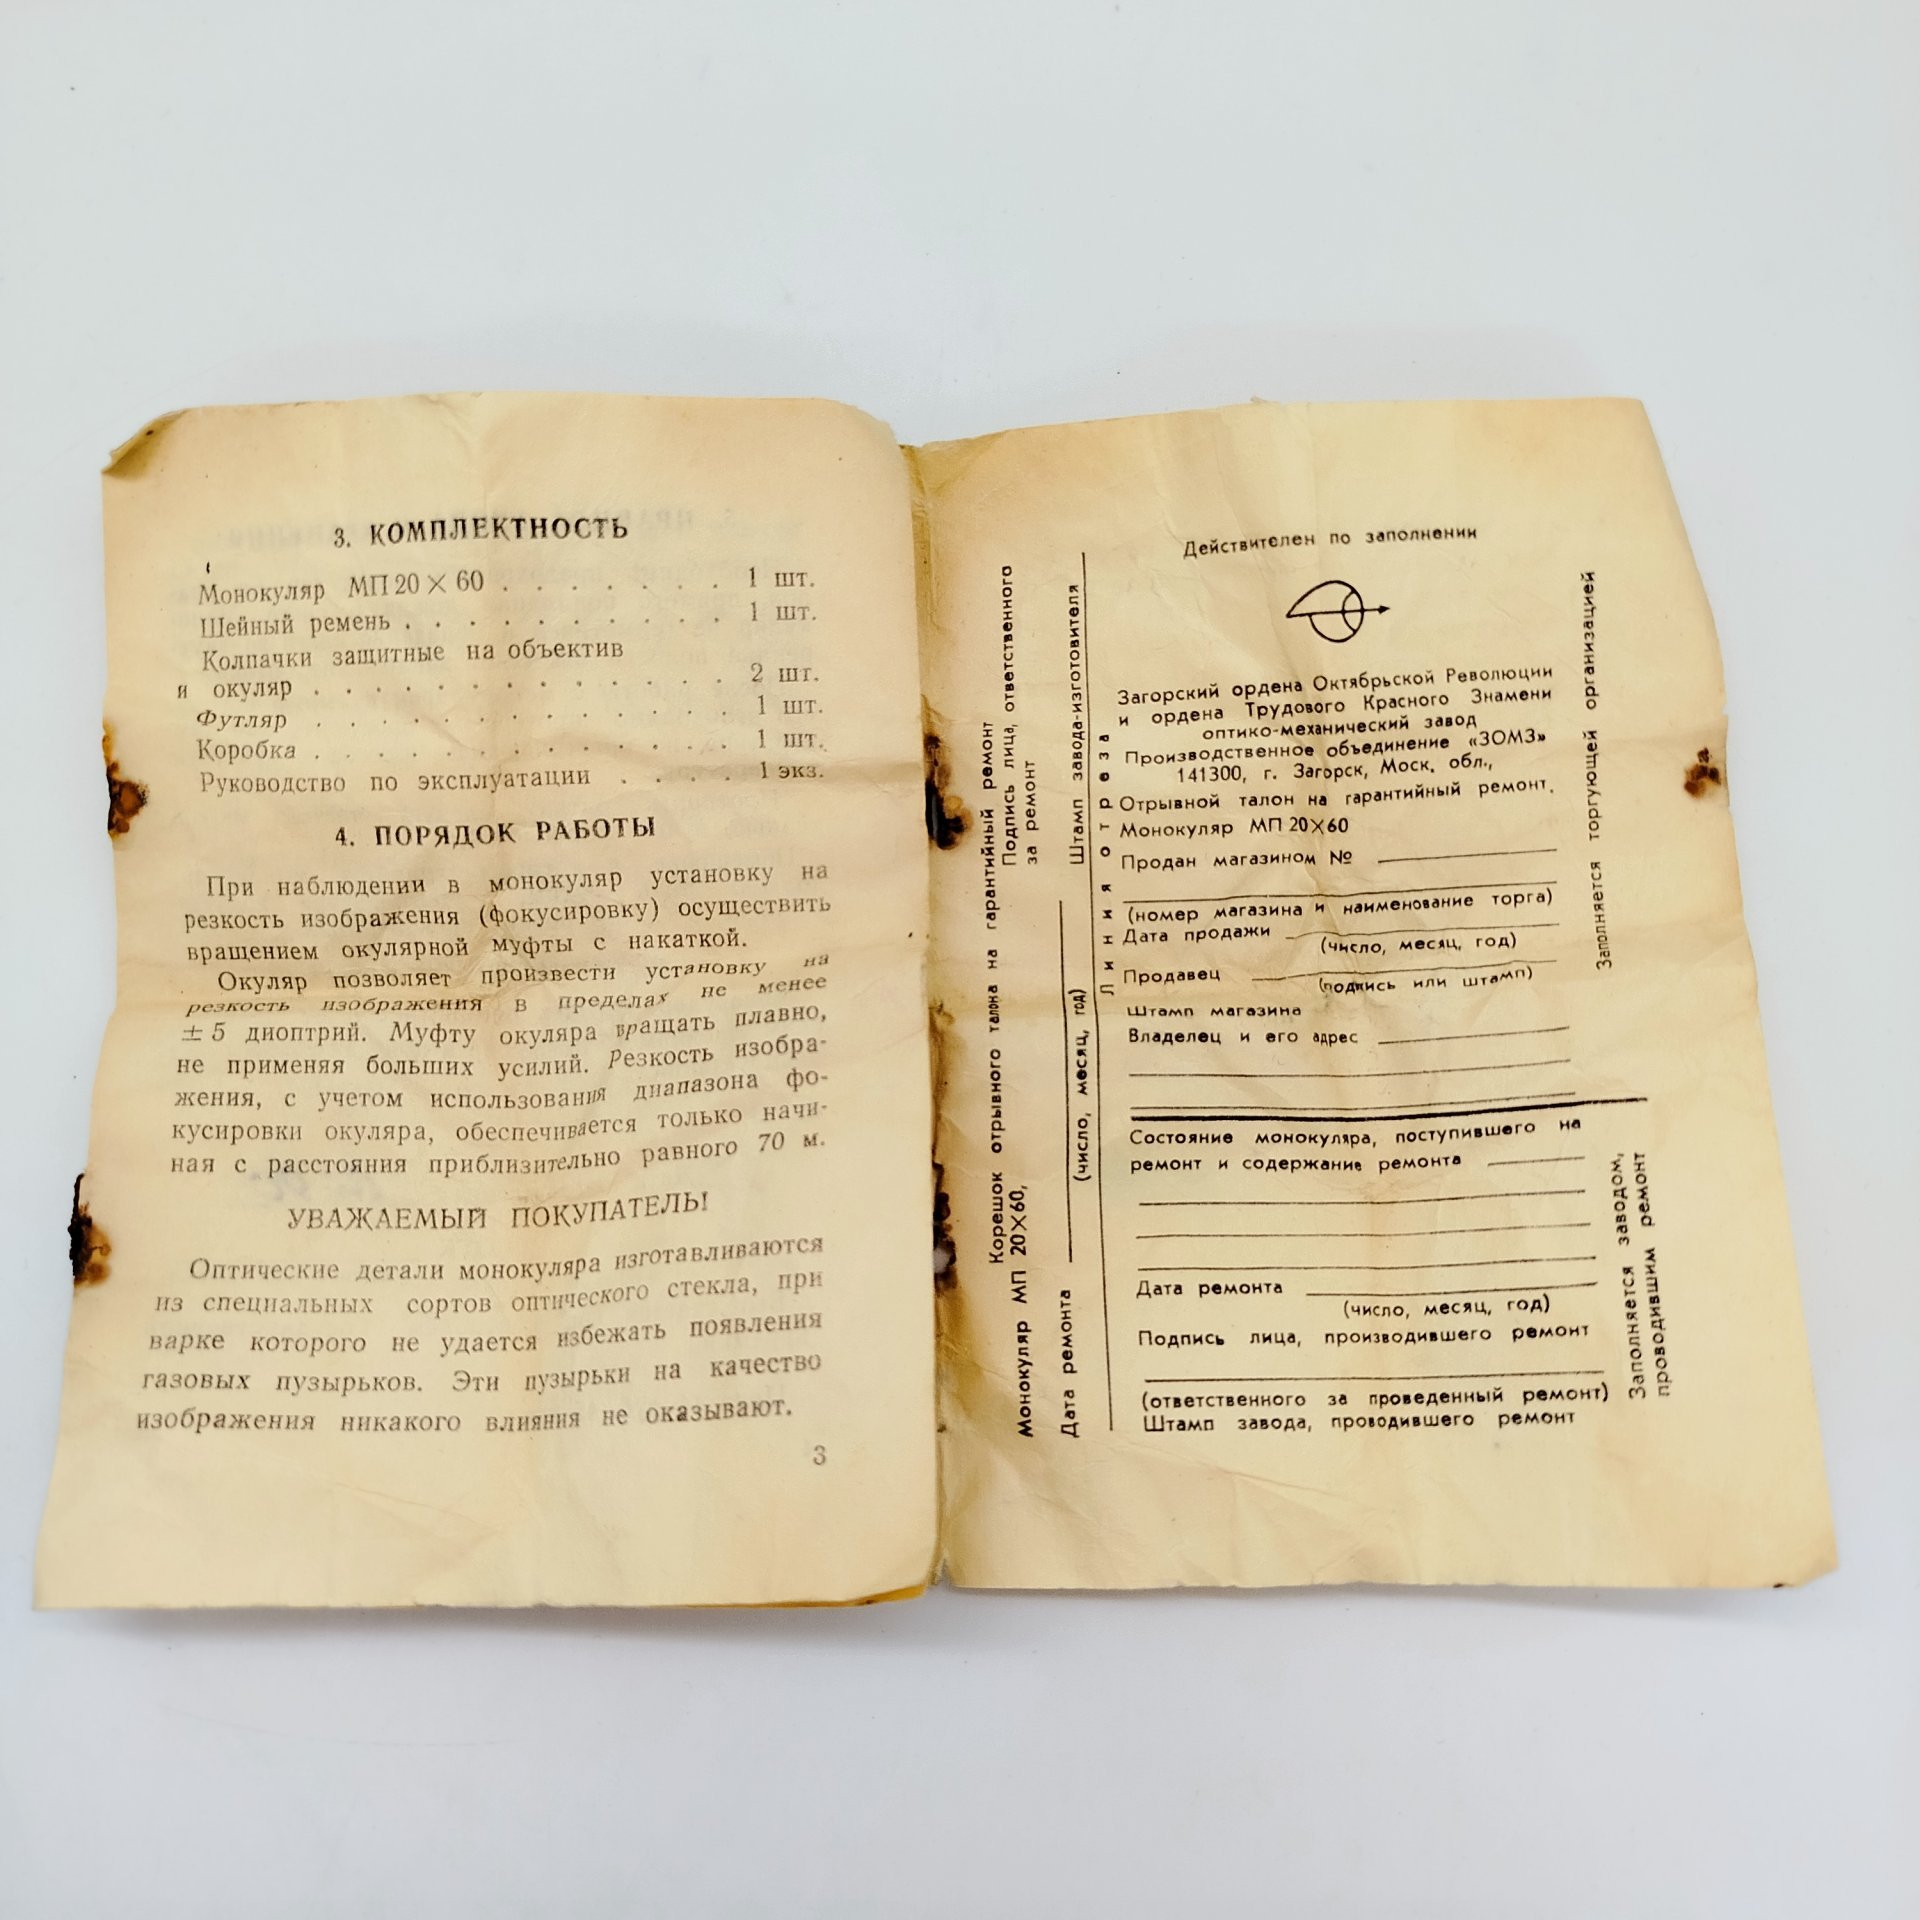 3. КОМПЛЕКТНОСТЬ
Монокуляр МП 20×60 . . . . . . . 1 шт.
Шейный ремень . . . . . . . . . . 1 шт.
Колпачки защитные на объектив
и окуляр . . . . . . . . . . . . . 2 шт.
Футляр . . . . . . . . . . . . . 1 шт.
Коробка . . . . . . . . . . . . . 1 шт.
Руководство по эксплуатации . . . . 1 экз.
4. ПОРЯДОК РАБОТЫ
При наблюдении в монокуляр установку на
резкость изображения (фокусировку) осуществить
вращением окулярной муфты с накаткой.
Окуляр позволяет произвести установку на
резкость изображения в пределах не менее
± 5 диоптрий. Муфту окуляра вращать плавно,
не применяя больших усилий. Резкость изобра-
жения, с учетом использования диапазона фо-
кусировки окуляра, обеспечивается только начи-
ная с расстояния приблизительно равного 70 м.
УВАЖАЕМЫЙ ПОКУПАТЕЛЬ!
Оптические детали монокуляра изготавливаются
из специальных сортов оптического стекла, при
варке которого не удается избежать появления
газовых пузырьков. Эти пузырьки на качество
изображения никакого влияния не оказывают.
3
Корешок отрывного талона на гарантийный ремонт
Монокуляр МП 20×60, Подпись лица, ответственного
за ремонт
Дата ремонта
(число, месяц, год)
Штамп завода-изготовителя
Линия отреза
Действителен по заполнении
Загорский ордена Октябрьской Революции
и ордена Трудового Красного Знамени
оптико-механический завод
Производственное объединение «ЗОМЗ»
141300, г. Загорск, Моск. обл.,
Отрывной талон на гарантийный ремонт.
Монокуляр МП 20×60
Продан магазином №
(номер магазина и наименование торга)
Дата продажи
(число, месяц, год)
Продавец
(подпись или штамп)
Штамп магазина
Владелец и его адрес
Заполняется торгующей организацией
Состояние монокуляра, поступившего на
ремонт и содержание ремонта
Дата ремонта
(число, месяц, год)
Подпись лица, производившего ремонт
(ответственного за проведенный ремонт)
Штамп завода, проводившего ремонт
Заполняется заводом,
проводившим ремонт